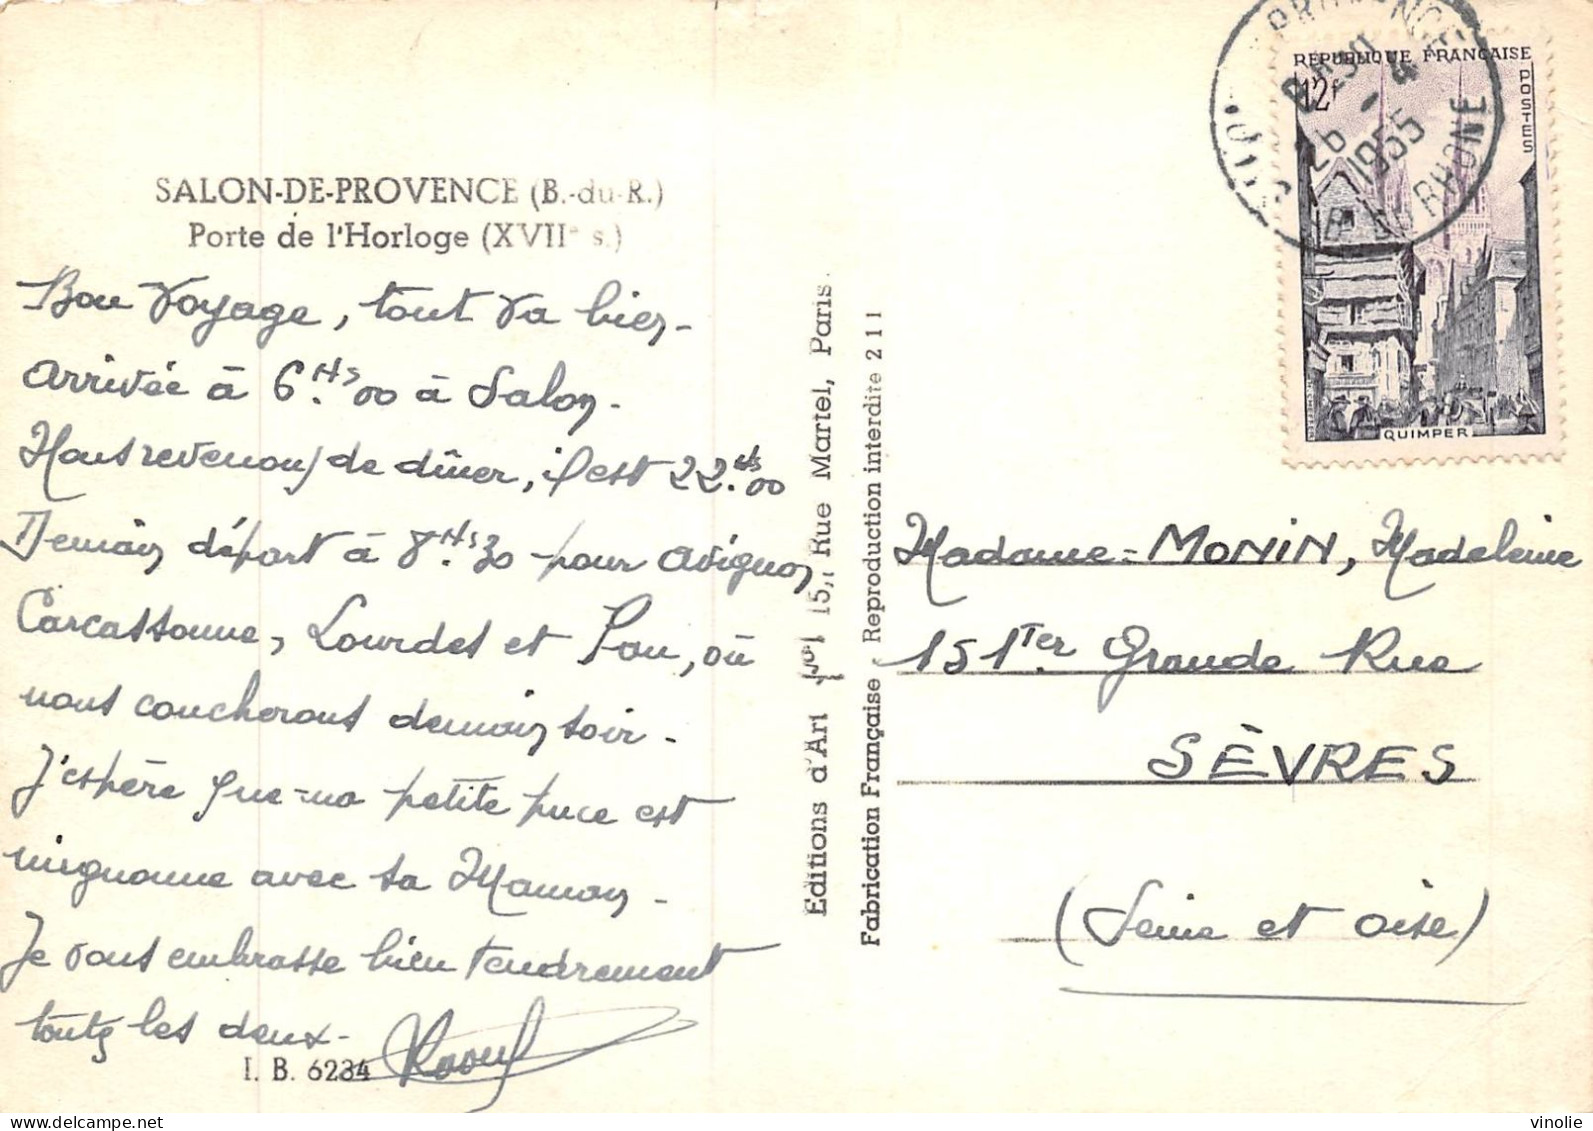 SALON-DE-PROVENCE (B.-du-R.)
Porte de l'Horloge (XVIIe s.)
Bon Voyage, tout va bien -
Arrivée à 6Hs.00 à Salon -
Nous revenons de dîner, il est 22.Hs00
Demain départ à 8.Hs30 pour Avignon
Carcassonne, Lourdes et Pau, où
nous coucherons demain soir -
J'espère que ma petite puce est
mignonne avec sa Maman -
Je vous embrasse bien tendrement
toutes les deux -
Raoul
I. B. 6234
Editions d'Art 15, Rue Martel, Paris
Fabrication Française - Reproduction interdite 211
PROVENCE
26 - 4
1955
B. DU RHONE
REPUBLIQUE FRANÇAISE
12F
POSTES
QUIMPER
Madame - MONIN, Madeleine
151Ter Grande Rue
SÈVRES
(Seine et Oise)
vinolie